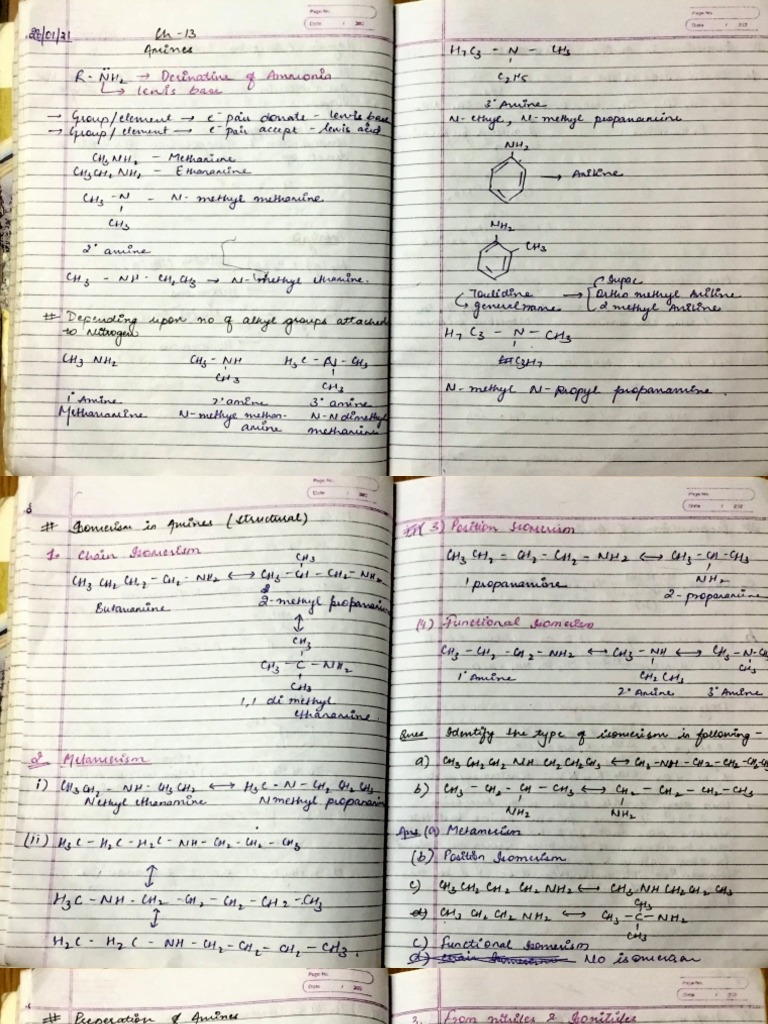 Page No.
Date
28/01/21
Ch - 13
Amines
R - NH2 → Derivative of Ammonia
↳ lewis base
→ Group/element → e- pair donate - lewis base
→ Group/element → e- pair accept - lewis acid
CH3NH2 - Methanamine
CH3CH2NH2 - Ethanamine
CH3 - N - N-methyl methanamine
CH3
2° amine
CH3 - NH - CH2CH3 → N-methyl ethanamine.
# Depending upon no of alkyl groups attached
to Nitrogen
CH3 NH2 CH3 - NH H3C - N - CH3
CH3 CH3
1° Amine 2° amine 3° amine
Methanamine N-methyl methan- N-N dimethyl
amine methanamine
Page No.
Date
H7C3 - N - CH3
C2H5
3° Amine
N-ethyl, N-methyl propanamine
NH2
→ Aniline
NH2
CH3
Iupac
Toulidine → Ortho methyl Aniline
general name 2 methyl Aniline
H7C3 - N - CH3
C3H7
N-methyl N-Propyl propanamine.
Page No.
Date
# Isomerism in Amines (structural)
1. Chain Isomerism
CH3
CH3 CH2 CH2 - CH2 - NH2 ↔ CH3 - CH - CH2 - NH2
Butanamine 2-methyl propanamine
↕
CH3
CH3 - C - NH2
CH3
1,1 di methyl
ethanamine.
2 Metamerism
i) CH3CH2 - NH - CH2CH3 ↔ H3C - N - CH2 CH2 CH3
N ethyl ethanamine N methyl propanamine
(ii) H3C - H2C - H2C - NH - CH2 - CH2 - CH3
↕
H3C - NH - CH2 - CH2 - CH2 - CH2 - CH3
↕
H2C - H2C - NH - CH2 - CH2 - CH2 - CH3.
Page No.
Date
3) Position Isomerism
CH3 CH2 = CH2 - CH2 - NH2 ↔ CH3 - CH - CH3
NH2
1 propanamine 2-propanamine
(4) Functional Isomerism
CH3 - CH2 - CH2 - NH2 ↔ CH3 - NH ↔ CH3 - N - CH3
CH2 CH3 CH3
1° Amine 2° Amine 3° Amine
Ques Identify the type of isomerism in following -
a) CH3 CH2 CH2 NH CH2 CH2 CH3 ↔ CH3 - NH - CH2 - CH2 - CH2 - CH3
b) CH3 - CH2 - CH - CH3 ↔ CH2 - CH2 - CH2 - CH3
NH2 NH2
Ans (a) Metamerism
(b) Position Isomerism
c) CH3 CH2 CH2 CH2 NH2 ↔ CH3 NH CH2 CH2 CH3
CH3
d) CH3 CH2 CH2 NH2 ↔ CH3 - C - NH2
CH3
c) Functional Isomerism
d) chain Isomerism No isomerism
Page No.
Date
# Preparation of Amines
Page No.
Date
3. From nitriles & Isonitriles